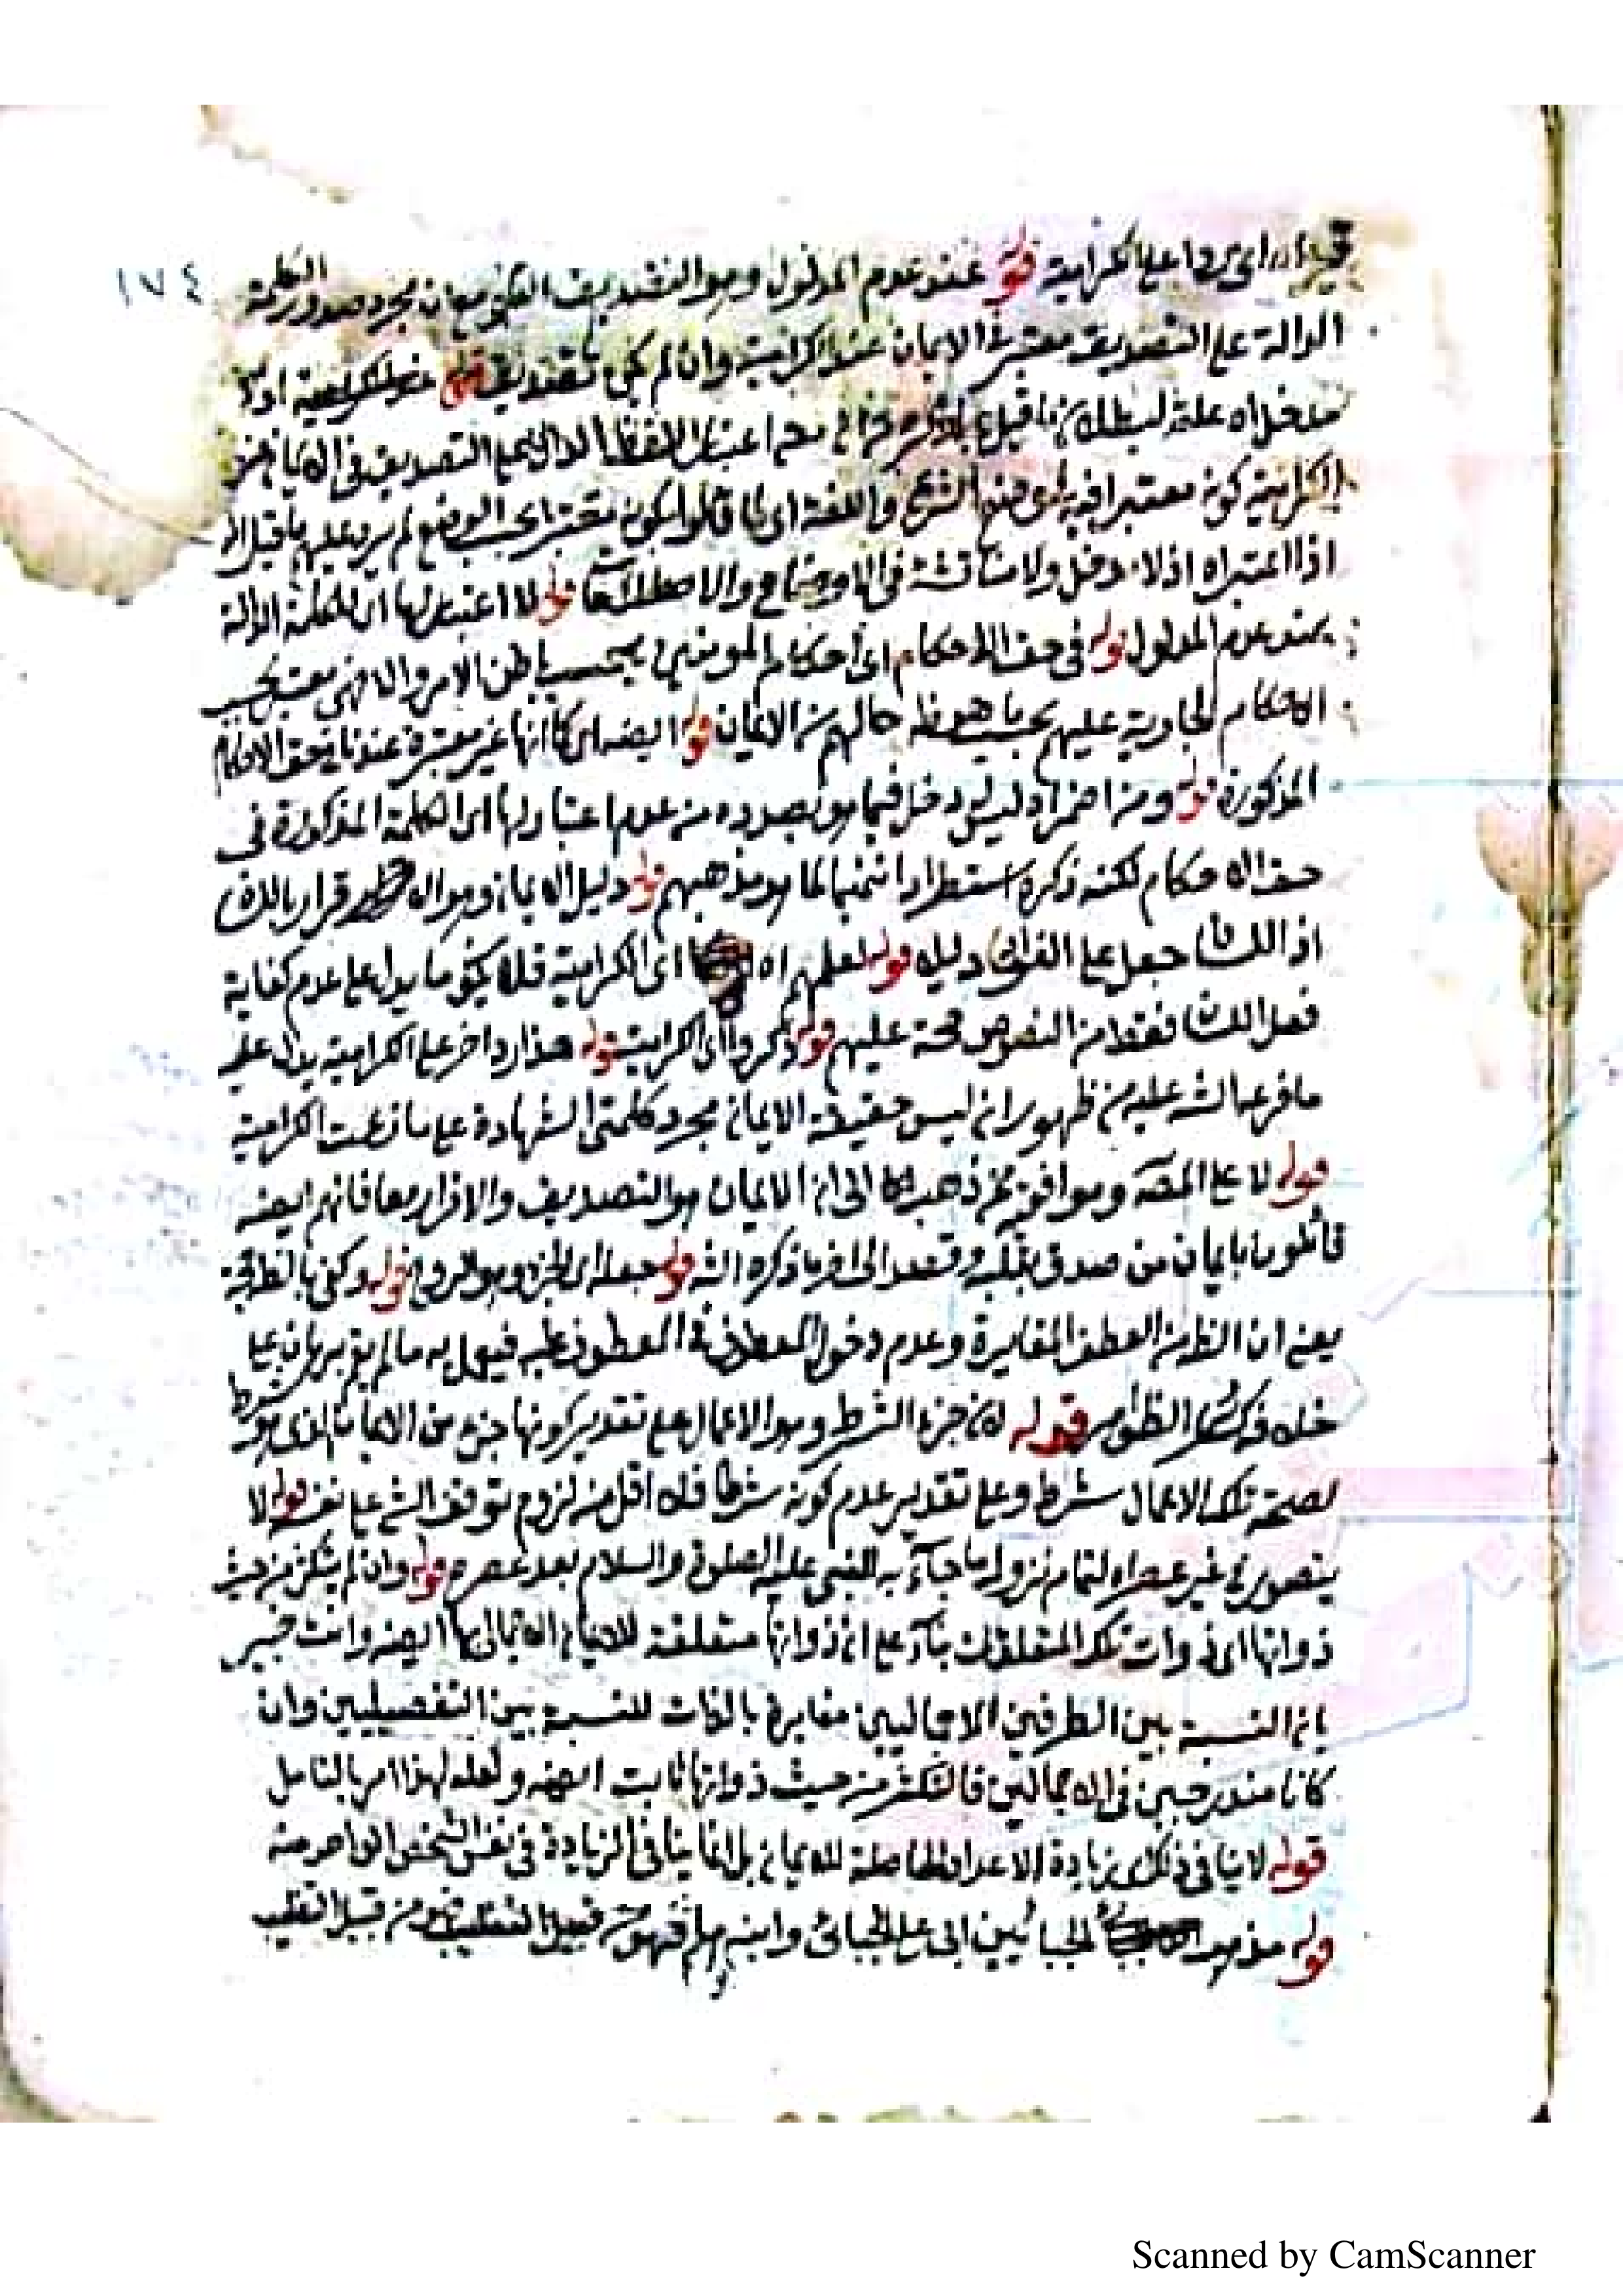 ١٧٤
على الكرامية قوله عند عدم المدلول وهو التصديق القلبى مع ان مجرد صدور الكلمة
الدالة على التصديق معتبرة فى الايمان عند الكرامية وان لم يكن تصديق قوله
مدخل اه علة لبطلان ما قيل اعتبار اللفظ الدال على التصديق فى الايمان عند
الكرامية كونه معتبرا فيه الشرع واللغة اى لما بحسب الوضع لم يرد عليهم ما قيل
اذا اعتبراه اذ لا دخل ولا مناقشة فى الاوضاع والاصطلاحات قوله لا اعتبار لها اى للكلمة الدالة
عند عدم المدلول قوله فى حق الاحكام اى احكام المؤمنين بحسب باطن الامر والا فهى معتبر بحسب
الاحكام الجارية عليهم بحسب ما هو ظ حالهم من الايمان قوله ايضه اى كما انها غير معتبرة عندنا فى حق الاحكام
المذكورة قوله ومن اضمر اه ليس له دخل فيما هو بصدده من عدم اعتبارها اى الكلمة المذكورة فى
حق الاحكام لكنه ذكره استطرادا تتميما لما هو مذهبهم قوله دليل الايمان وهو الاقرار باللسان
اذ اللسان جعل على الفؤاد دليلا قوله لعلهم اه اى الكرامية فلا يكون ما يدل على عدم كفاية
فعل اللسان فقط من النصوص حجة عليهم قوله ذكروا اى الكرامية قوله هذا رد اخر على الكرامية يدل عليه
ما فرعه الشه عليه من ظهور ان ليس حقيقة الايمان مجرد كلمتى الشهادة على ما زعمت الكرامية
قوله لا على المصه وموافقيه ممن ذهب الى ان الايمان هو التصديق والاقرار معا فانهم ايضه
قائلون بايمان من صدق بقلبه وقصد الى اخر ما ذكره الشه قوله جعله اى الجزء وهو الروح قوله وكفى بالظ حجة
يعنى ان الظ من العطف المغايرة وعدم دخول المعطوف فى المعطوف عليه فيعمل به ما لم يقم برهان على
خلافه كسائر الظواهر قوله لان جزء الشرط وهو الاعمال على تقدير كونها جزء من الايمان الذى هو شرط
لصحة تلك الاعمال شرط وعلى تقدير عدم كونه شرطا فلا اقل من لزوم توقف الشئ على نفسه قوله لا
يتصور فى غير عصره لتمام نزول ما جاء به النبى عليه الصلوة والسلام بعد عصره قوله وان لم يتكثر من حيث
ذواتها اى ذوات تلك المتعلقات بناء على ان ذواتها متعلقة للايمان الاجمالى ايضه وانت خبير
بان النسبة بين الطرفين الاجماليين مغايرة بالذات للنسبة بين التفصيليين وان
كانا مندرجين فى الاجماليين فالتكثر من حيث ذواتها ثابت ايضه ولعله لهذا امر بالتامل
قوله لا ينافى ذلك زيادة الاعداد الحاصلة للايمان بل انما ينافى الزيادة فى نفس الشخص الواحد منه
قوله مذهب الجبائيين ابى على الجبائى وابنه فهو من قبيل التغليب